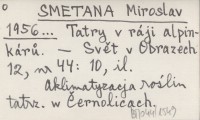 SMETANA Miroslav
1956... Tatry v ráji alpin-
kárů. — Svět v Obrazech
12, nr 44: 10, il.
Aklimatyzacja roślin
tatrz. w Černolicach.